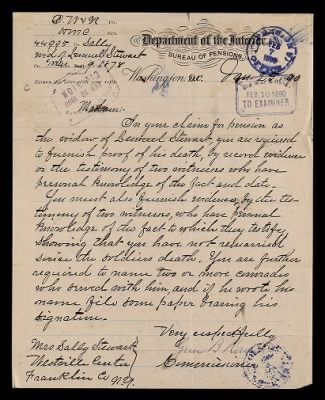 O.W.&N.
WMC
44995 - Sally
wid of Lemuel Stewart
Department of the Interior,
BUREAU OF PENSIONS,
Washington, D.C. Jany 90
FEB 10 1890
TO EXAMINER
Madam:
In your claim for pension as
the widow of Lemuel Stewart, you are required
to furnish proof of his death, by record evidence
or the testimony of two witnesses who have
personal knowledge of the fact and date.
You must also furnish evidence, by the tes-
timony of two witnesses, who have personal
knowledge of the fact to which they testify,
showing that you have not remarried
since the soldiers death. You are further
required to name two or more comrades
who served with him and if he wrote his
name file some paper bearing his
signature.
Very respectfully
Commissioner
Mrs Sally Stewart
Westville Center
Franklin Co N.Y.